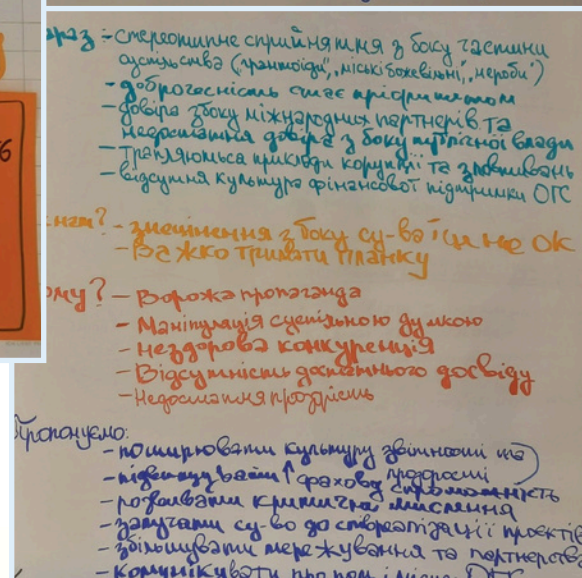 6
араз:-стереотипне сприйняття з боку частини
суспільства („грантоїди", „міські божевільні", „нероби")
-доброчесність стає пріоритетом
-довіра з боку міжнародних партнерів та
недостатня довіра з боку публічної влади
-трапляються приклади корупції та зловживань
-відсутня культура фінансової підтримки ОГС
? -знецінення з боку су-ва і це не ок
-Важко тримати планку
ому? -Ворожа пропаганда
-Маніпуляція суспільною думкою
-Нездорова конкуренція
-Відсутність достатнього досвіду
-Недостатня прозорість
Пропонуємо:
-поширювати культуру звітності та
прозорості
-підвищувати ↑ фахову спроможність
-розвивати критичне мислення
-залучати су-во до співреалізації проєктів
-збільшувати мережування та партнерства
-комунікувати про роль і місію ОГС